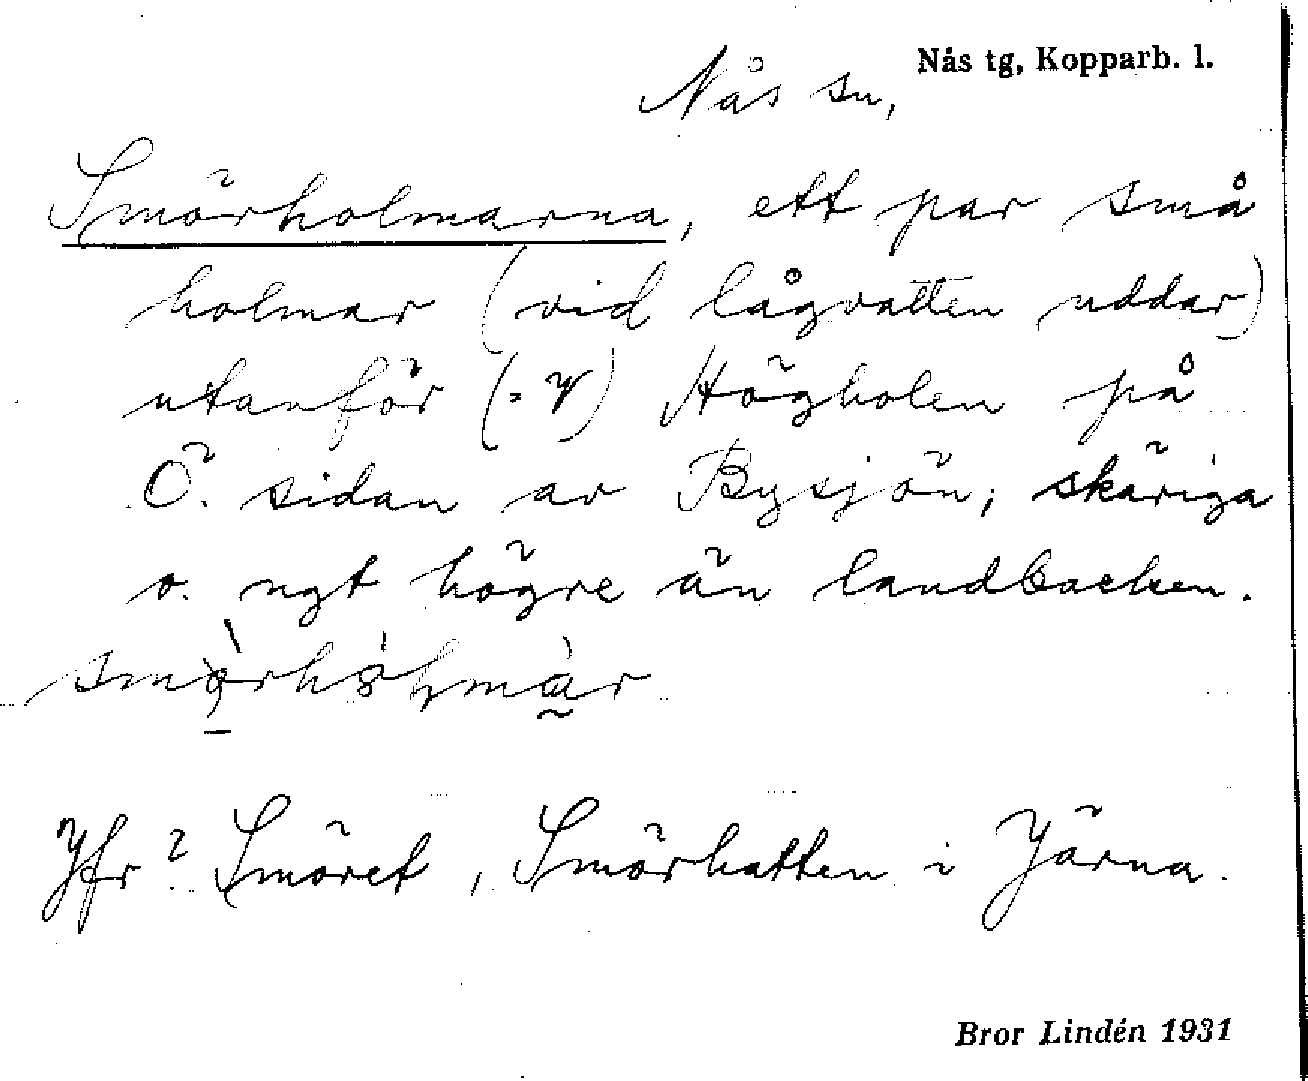 Nås tg, Kopparb. l.
Nås sn,
Smörholmarna, ett par små
holmar (vid lågvatten uddar)
utanför (: V) Högholen på
Ö. sidan av Bysjön; skäriga
o. ngt högre än landbacken.
Jfr? Smöret, Smörhatten i Järna.
Bror Lindén 1931